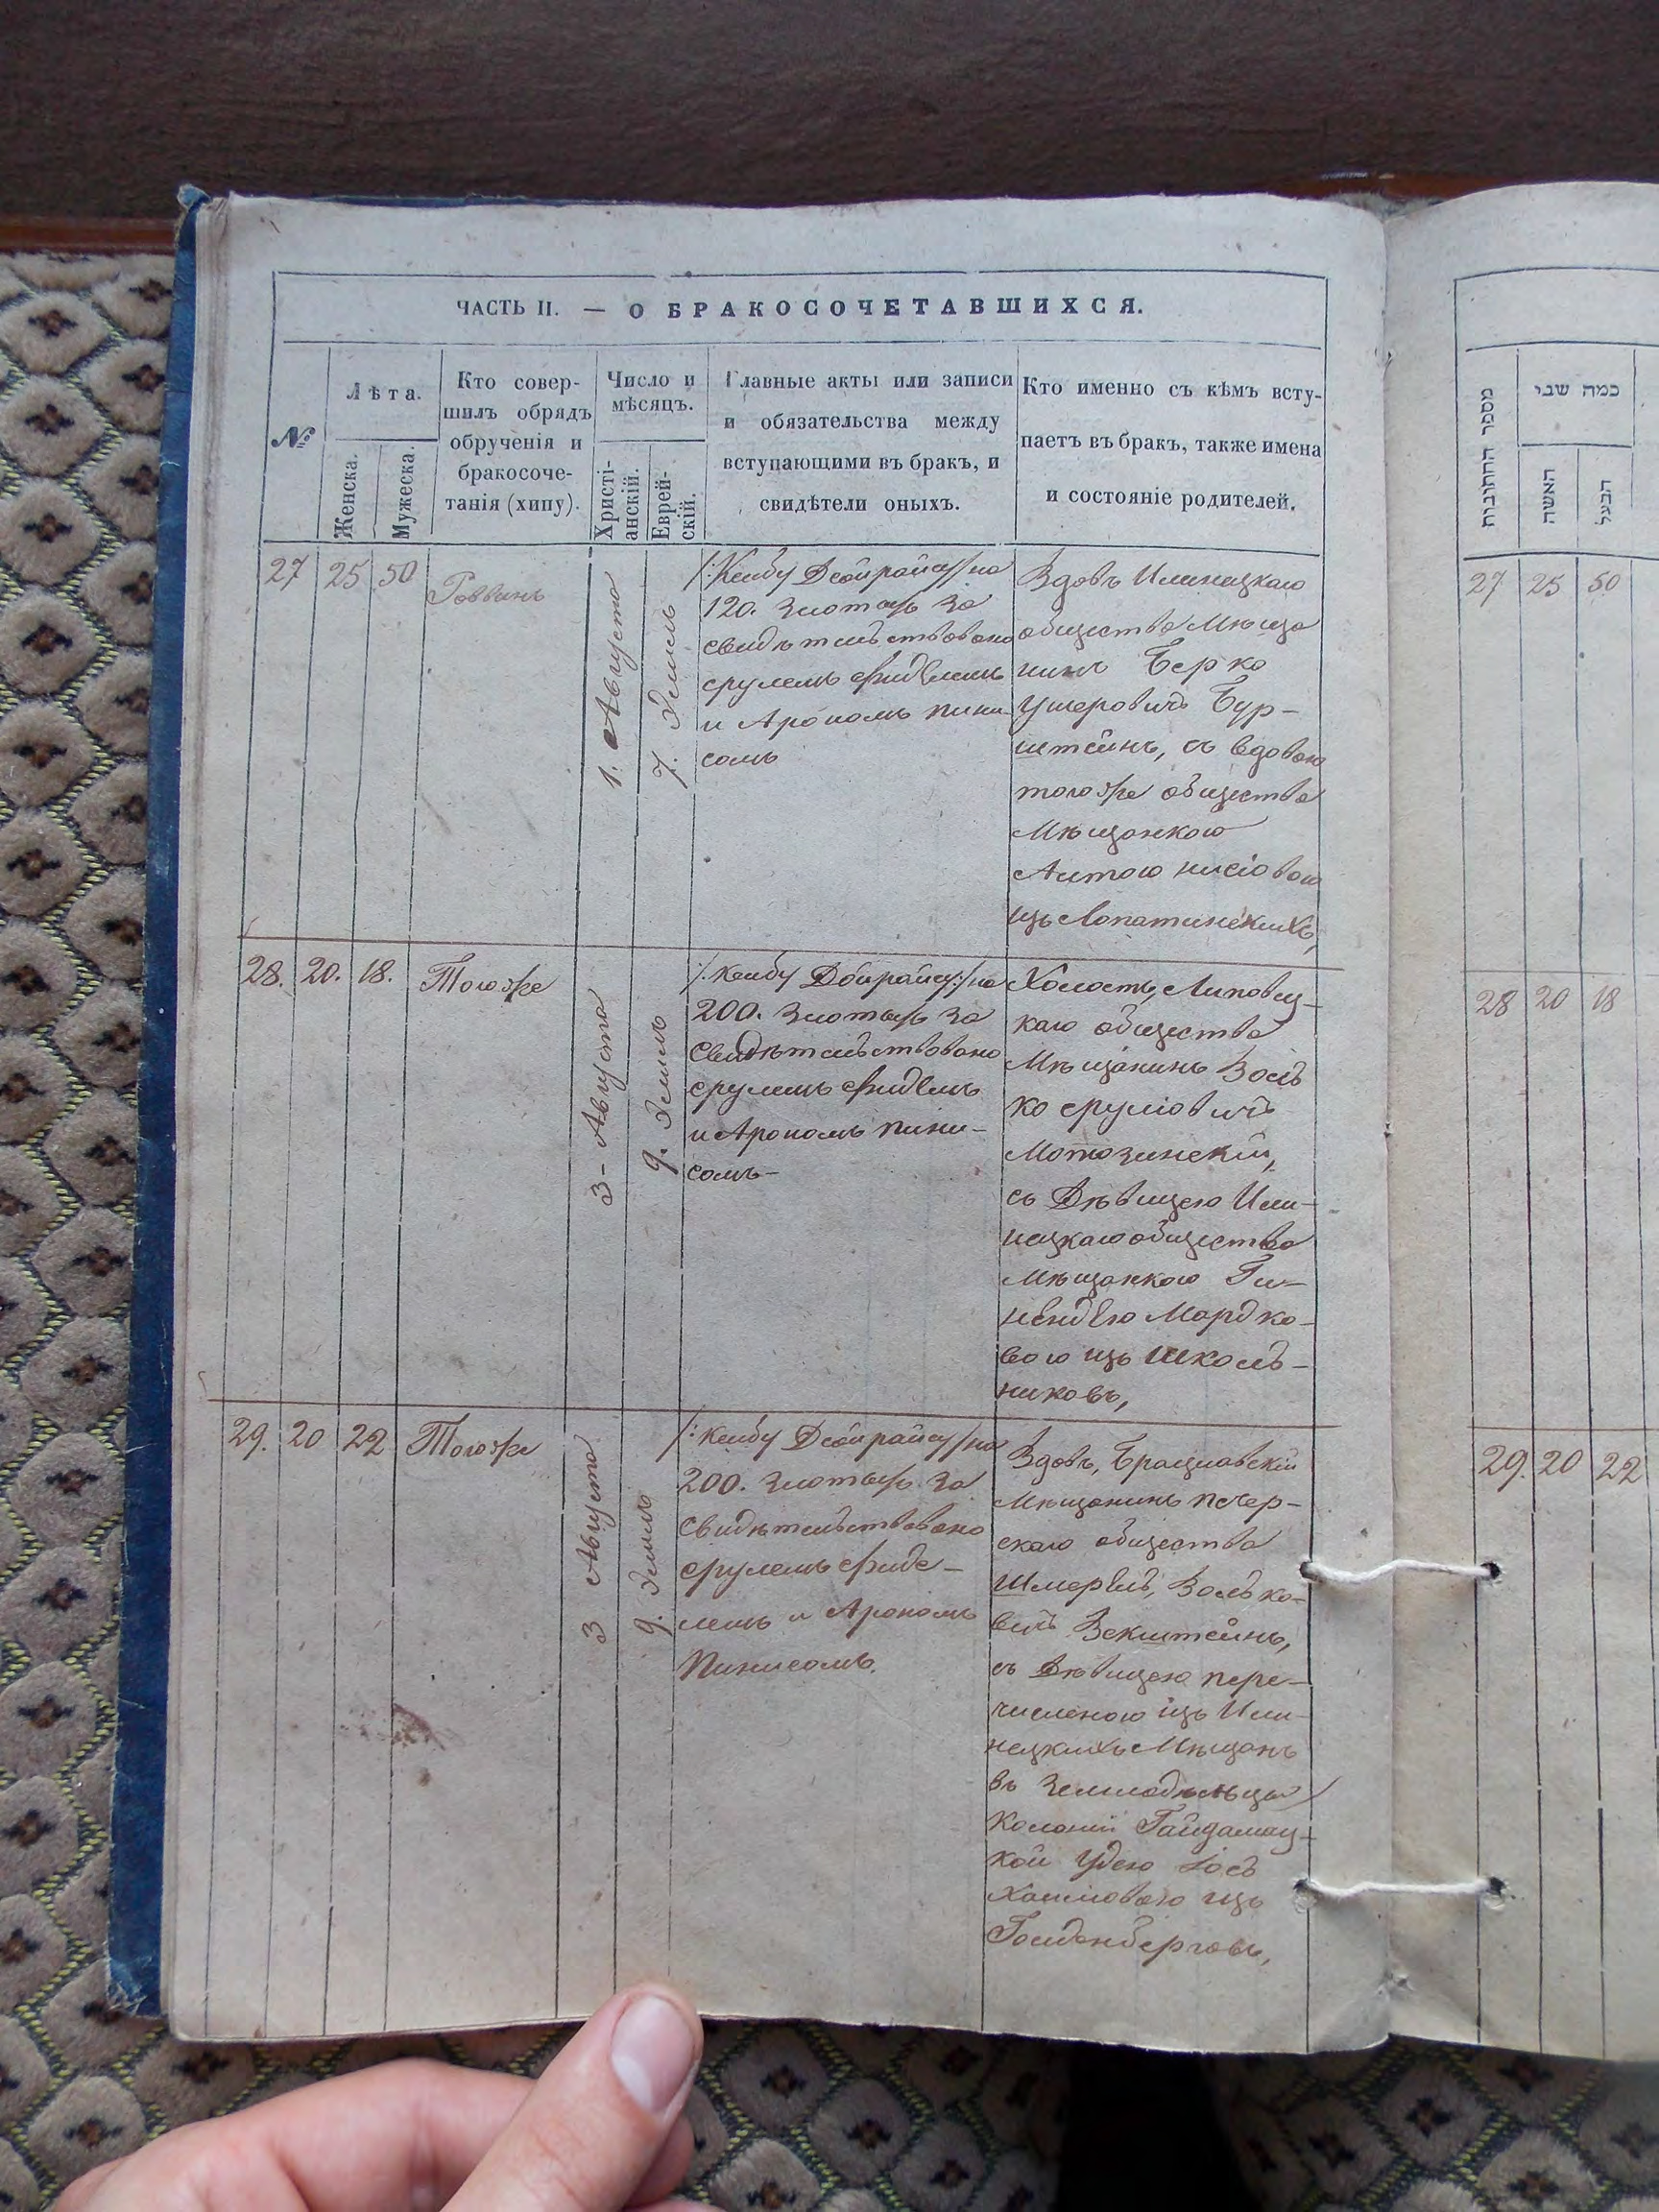 ЧАСТЬ II. — О БРАКОСОЧЕТАВШИХСЯ.
№
Лѣта.
Женска.
Мужеска.
Кто совер-
шилъ обрядъ
обрученія и
бракосоче-
танія (хипу).
Число и
мѣсяцъ.
Христі-
анскій.
Еврей-
скій.
Главные акты или записи
и обязательства между
вступающими въ бракъ, и
свидѣтели оныхъ.
Кто именно съ кѣмъ всту-
паетъ въ бракъ, также имена
и состояніе родителей.
27
25
50
Раввинъ
1. Августа
7. Элиль
120. злотыхъ за
свидѣтельствована
срулемъ
и Арономъ пини
сомъ
Вдовъ Илинецкаго
общества Мѣща
нинъ Берко
Ушеровичъ Бур-
штейнъ, съ вдовою
того же общества
Мѣщанкою
нисіовою
изъ Лопатинскихъ,
28.
20.
18.
Того же
3 - Августа
9. Элиль
200. злотыхъ за
свидѣтельствована
срулемъ
и Арономъ пини-
сомъ-
Холостъ, Липовец-
каго общества
Мѣщанинъ Воль
ко сруліовичъ
съ Дѣвицею Или-
нецкаго общества
Мѣщанкою Ги-
Мордко-
вою изъ Школь-
никовъ,
29.
20
22
Того же
3 Августа
9. Элиль
200. злотыхъ за
свидѣтельствована
срулемъ фиде-
лемъ и Арономъ
Пинисомъ.
Вдовъ, Брацлавскій
Мѣщанинъ печер-
скаго общества
Шмерель, Волько-
вичъ Векштейнъ,
съ Дѣвицею пере-
численою изъ Или-
нецкихъ Мѣщанъ
въ земледѣльцы
Колоніи Гайдамац-
кой
Хаимовою изъ
Голденберговъ,
מספר החתונות
כמה שני
האשה
הבעל
27
25
50
28
20
18
29.
20
22